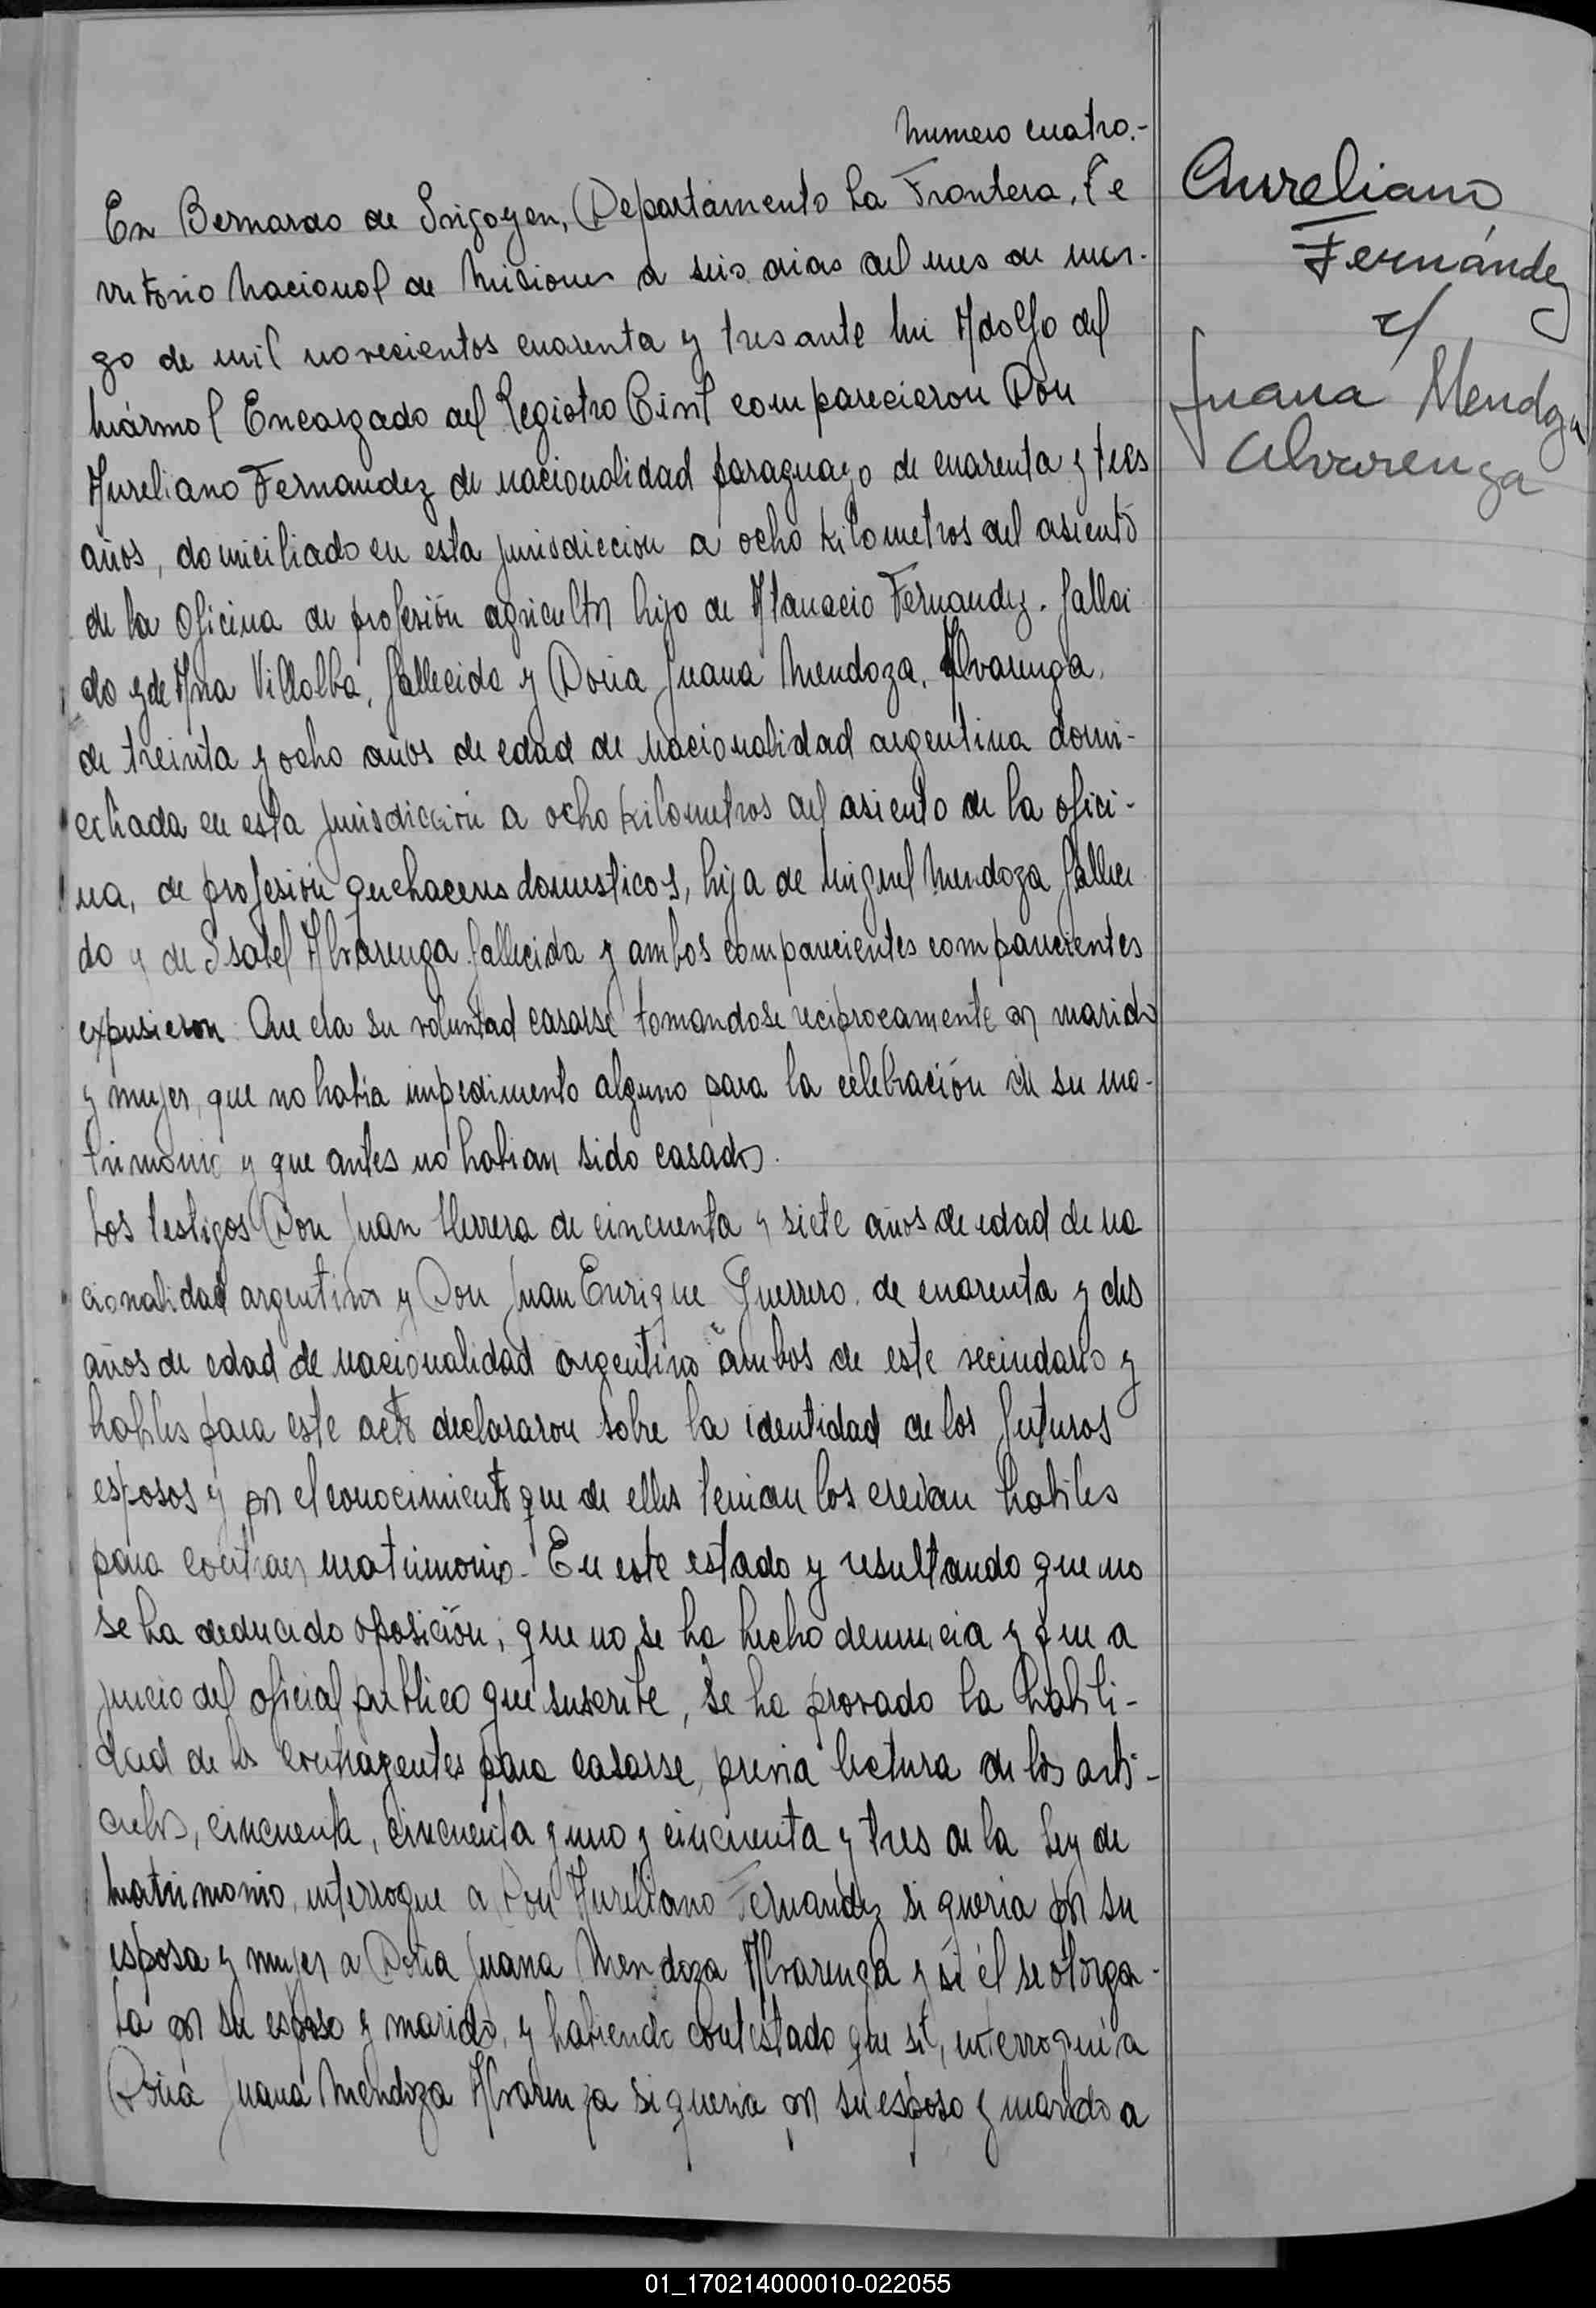 Numero cuatro.-
En Bernardo de Irigoyen, Departamento La Frontera, Te
rritorio Nacional de Misiones a seis dias del mes de mar-
zo de mil novecientos cuarenta y tres ante mi Adolfo del
Mármol Encargado del Registro Civil comparecieron Don
Aureliano Fernandez de nacionalidad paraguayo de cuarenta y tres
años, domiciliado en esta jurisdiccion a ocho kilometros del asiento
de la Oficina de profesión agricultor hijo de Atanacio Fernandez. falleci
do y de Ana Villalba, fallecida y Doña Juana Mendoza, Alvarenga,
de treinta y ocho años de edad de nacionalidad argentina domi-
ciliada en esta jurisdicción a ocho kilometros del asiento de la ofici-
na, de profesión quehaceres domesticos, hija de Miguel Mendoza falleci
do y de Isabel Alvarenga fallecida y ambos comparecientes comparecientes
expusieron: Que era su voluntad casarse tomandose reciprocamente por marido
y mujer, que no habia impedimento alguno para la celebración de su ma-
trimonio y que antes no habian sido casados.
Los testigos Don Juan Herrera de cincuenta y siete años de edad de na
cionalidad argentino y Don Juan Enrique Guerrero. de cuarenta y dos
años de edad de nacionalidad argentino ambos de este vecindario y
habiles para este acto declararon sobre la identidad de los futuros
esposos y por el conocimiento que de ellos tenian los creian habiles
para contraer matrimonio. En este estado y resultando que no
se ha deducido oposición, que no se ha hecho denuncia y que a
juicio del oficial publico que suscribe, se ha provado la habili-
dad de los contrayentes para casarse, previa lectura de los arti-
culos, cincuenta, cincuenta y uno y cincuenta y tres de la Ley de
Matrimonio, interrogue a Don Aureliano Fernandez si queria por su
esposa y mujer a Doña Juana Mendoza Alvarenga y si él se otorga-
ba por su esposo y marido, y habiendo contestado que si, interrogué a
Doña Juana Mendoza Alvarenga si queria por su esposo y marido a
Aureliano
Fernández
c/
Juana Mendoza
Alvarenga
01_170214000010-022055